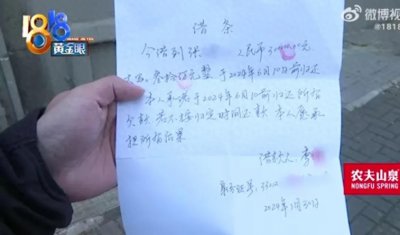 1818
黄金眼
微博视
@1818
借条
今借到洪 人民币
元整 于2024年6月10前归还
本人承诺于2024年6月10前归还所指
欠款 若不按归定时间还款 本人愿承
担所有后果
借款人：李
身份证号：3302
2024年1月30日
农夫山泉
NONGFU SPRING